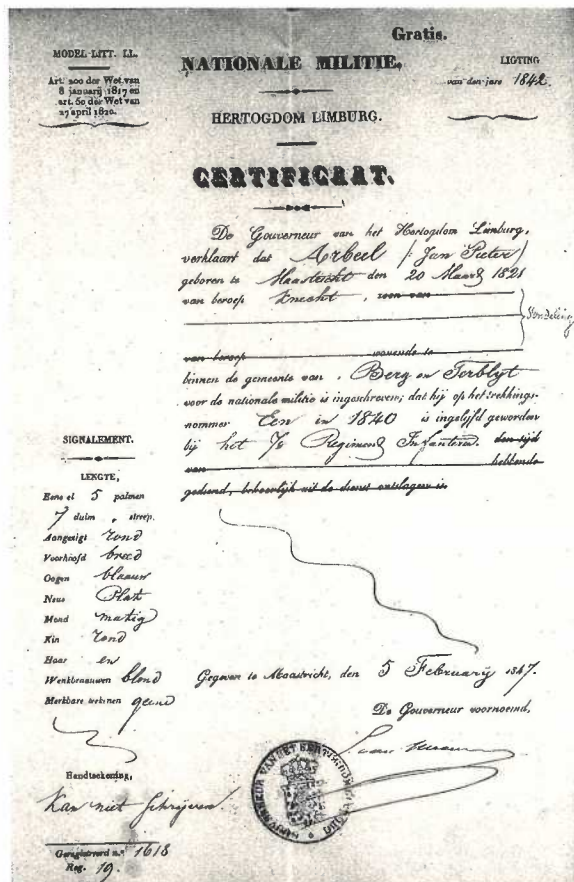 Gratis.
MODEL-LITT. LL.
Art. 200 der Wet van
8 januarij 1817 en
art. 50 der Wet van
27 april 1820.
NATIONALE MILITIE,
HERTOGDOM LIMBURG.
LIGTING
van den jare 1842.
CERTIFICAAT.
De Gouverneur van het Hertogdom Limburg,
verklaart dat Arbeel (Jan Pieter)
geboren te Maastricht den 20 Maart 1821
van beroep Knecht, zoon van
Vondeling
van beroep wonende te
binnen de gemeente van Berg en Terblyt
voor de nationale militie is ingeschreven; dat hij op het trekkings-
nommer Een in 1840 is ingelijfd geworden
bij het 7e Regiment Infanterie. den tijd
van hebbende
gediend, behoorlijk uit de dienst ontslagen is
SIGNALEMENT.
LENGTE,
Eene el 5 palmen
7 duim " streep.
Aangezigt rond
Voorhoofd breed
Oogen blaauw
Neus Plat
Mond matig
Kin rond
Haar en
Wenkbraauwen blond
Merkbare teekenen geene
Gegeven te Maastricht, den 5 February 1847.
De Gouverneur voornoemd,
Handteekening,
Kan niet schrijven.
Geregistreerd n.º 1618
Reg. 19.